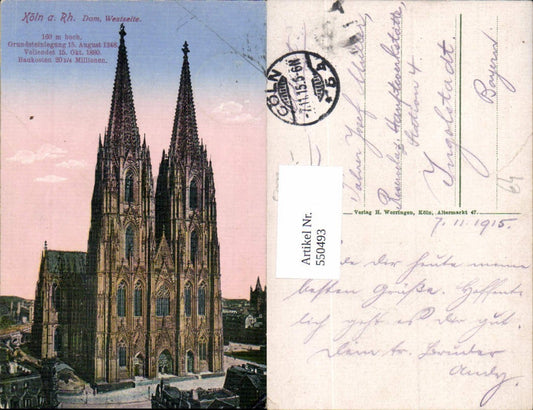 Köln a. Rh. Dom, Westseite.
160 m hoch.
Grundsteinlegung 15. August 1248.
Vollendet 15. Okt. 1880.
Baukosten 20¼ Millionen.
CÖLN
7.11.15.5-6N
Josef
Hauptwerkstätte
Station 4
Ingolstadt.
Bayern
64
Verlag H. Worringen, Köln, Altermarkt 47.
Artikel Nr.
550493
7.11.1915.
de dir heute meine
besten Grüße. Hoffent-
lich geht es dir gut.
Dein tr. Bruder
Andy.